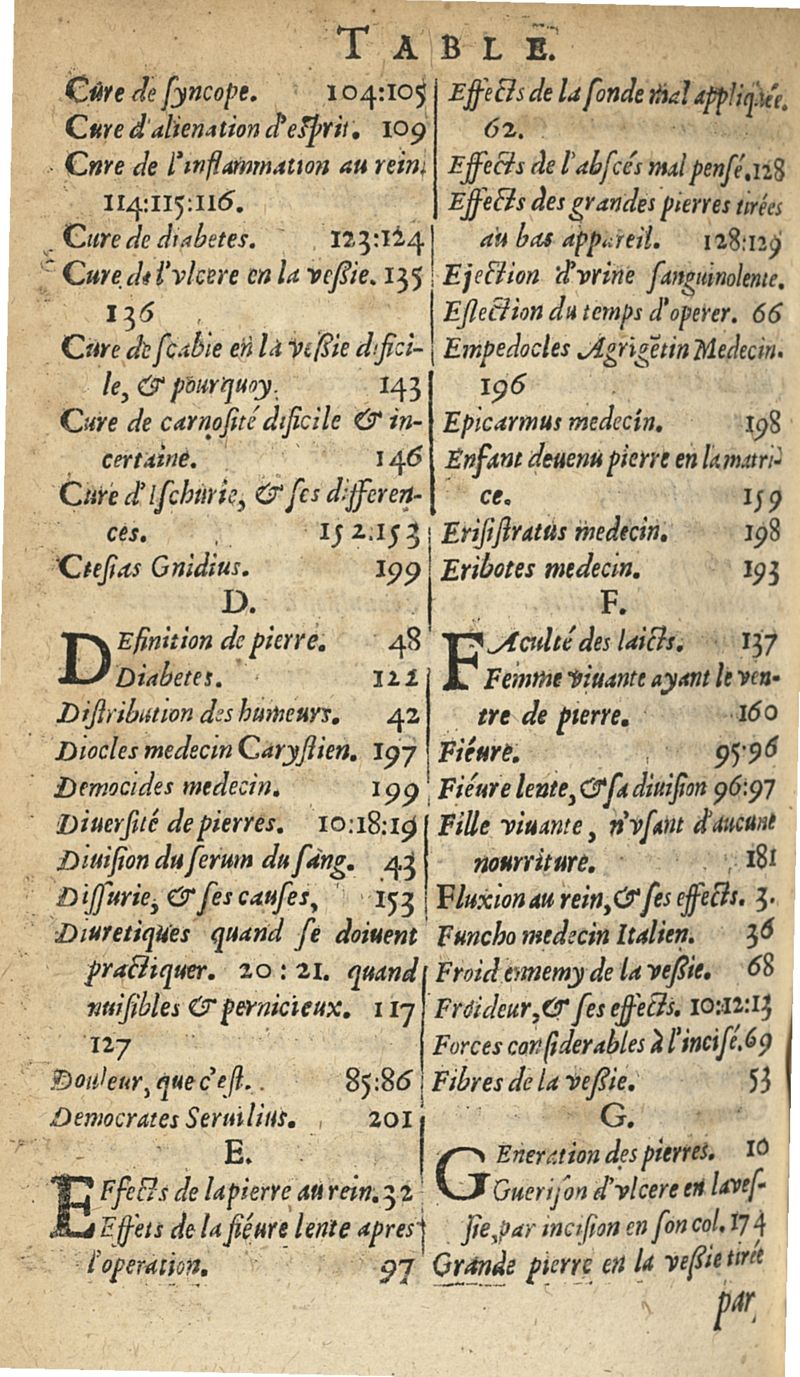 TABLE.
Cûre de syncope. 104:105
Cure d'alienation d'esprit. 109
Cnre de l'inflammation au rein,
114:115:116.
Cure de diabetes. 123:124
Cure de l'vlcere en la veßie. 135
136
Cure de scabie en la veßie difici-
le, & pourquoy. 143
Cure de carnosité dificile & in-
certaine. 146
Cure d'Ischurie, & ses differen-
ces. 152.153
Ctesias Gnidius. 199
D.
DEfinition de pierre. 48
Diabetes. 122
Distribution des humeurs. 42
Diocles medecin Carystien. 197
Democides medecin. 199
Diuersité de pierres. 10:18:19
Diuision du serum du sang. 43
Dissurie, & ses causes, 153
Diuretiques quand se doiuent
practiquer. 20:21. quand
nuisibles & pernicieux. 117
127
Douleur, que c'est. 85:86
Democrates Seruilius. 201
E.
EFfects de la pierre au rein. 32
Effets de la fiéure lente apres
l'operation. 97
Effects de la sonde mal appliquée.
62.
Effects de l'abscés mal pensé. 128
Effects des grandes pierres tirées
au bas appareil. 128:129
Ejection d'vrine sanguinolente.
Eslection du temps d'operer. 66
Empedocles Agrigẽtin Medecin.
196
Epicarmus medecin. 198
Enfant deuenu pierre en la matri-
ce. 159
Erisistratus medecin. 198
Eribotes medecin. 193
F.
FAculté des laicts. 137
Femme viuante ayant le ven-
tre de pierre. 160
Fiéure. 95.96
Fiéure lente, & sa diuision 96:97
Fille viuante, n'vsant d'aucune
nourriture. 181
Fluxion au rein, & ses effects. 3.
Funcho medecin Italien. 36
Froid ennemy de la veßie. 68
Froideur, & ses effects. 10:12:13
Forces considerables à l'incisé. 69
Fibres de la veßie. 53
G.
GEneration des pierres. 10
Guerison d'vlcere en la ves-
sie, par incision en son col. 174
Grande pierre en la veßie tirée
par